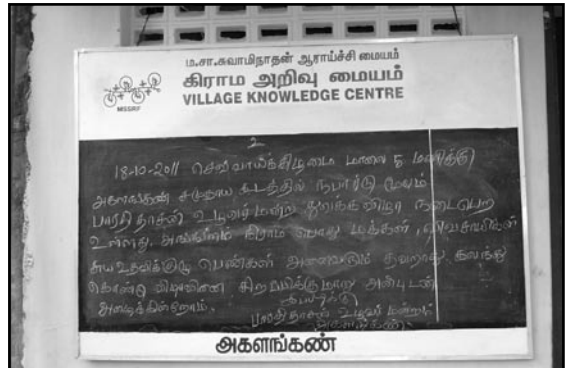 ம.சா.சுவாமிநாதன் ஆராய்ச்சி மையம்
கிராம அறிவு மையம்
VILLAGE KNOWLEDGE CENTRE
MSSRF
உ
18-10-2011 செவ்வாய்க்கிழமை மாலை 5 மணிக்கு
அகளங்கண் சமுதாய கூடத்தில் நபார்டு மற்றும்
பாரதிதாசன் உழவர் மன்ற துவக்க விழா நடைபெற
உள்ளது. அகளங்கண் கிராம பொது மக்கள், விவசாயிகள்
சுய உதவிக்குழு பெண்கள் அனைவரும் தவறாது கலந்து
கொண்டு விழாவினை சிறப்பிக்குமாறு அன்புடன்
அழைக்கின்றோம்.
பாரதிதாசன் உழவர் மன்றம்
அகளங்கண்.
அகளங்கண்